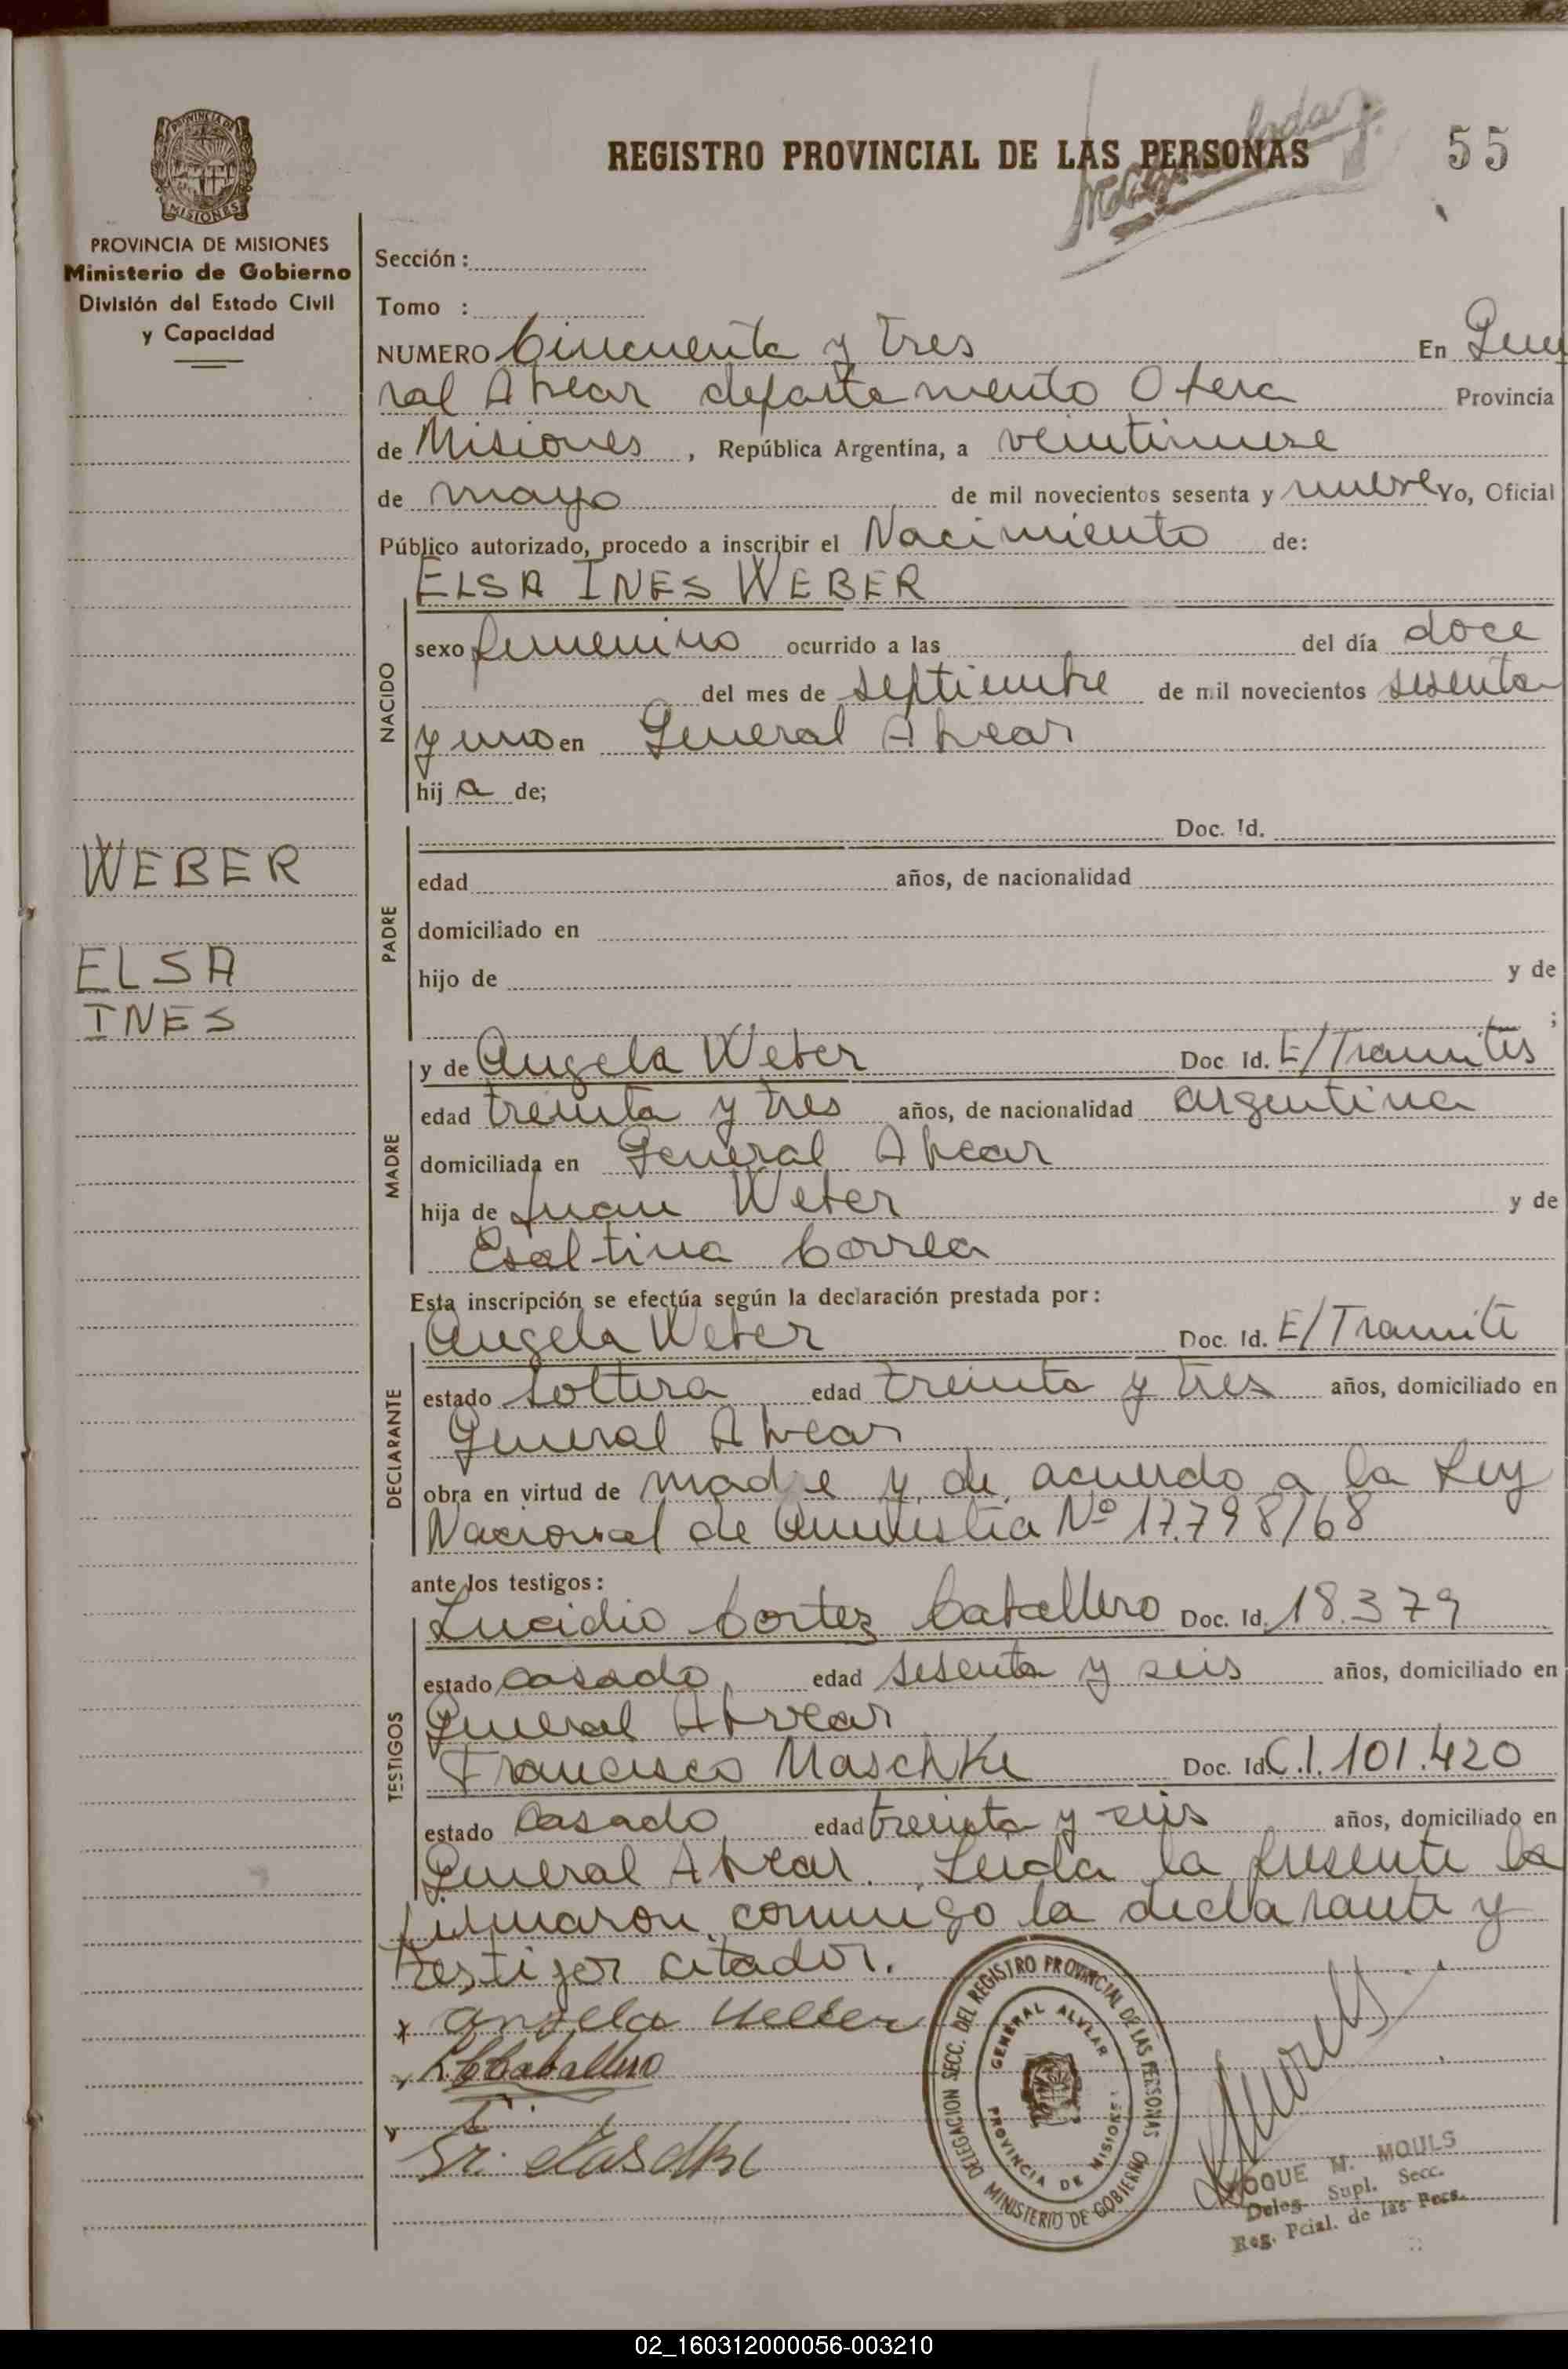 REGISTRO PROVINCIAL DE LAS PERSONAS
55
PROVINCIA DE MISIONES
Ministerio de Gobierno
División del Estado Civil
y Capacidad
Sección :
Tomo :
NUMERO Cincuenta y tres En Gene
ral Alvear departamento Obera Provincia
de Misiones , República Argentina, a veintinueve
de mayo de mil novecientos sesenta y nueve Yo, Oficial
Público autorizado, procedo a inscribir el Nacimiento de:
ELSA INES WEBER
NACIDO
sexo femenino ocurrido a las del día doce
del mes de septiembre de mil novecientos sesenta
y uno en General Alvear
hij a de;
WEBER
ELSA
INES
PADRE
Doc. Id.
edad años, de nacionalidad
domiciliado en
hijo de y de
;
MADRE
y de Angela Weber Doc. Id. E/Tramites
edad treinta y tres años, de nacionalidad argentina
domiciliada en General Alvear
hija de Juan Weber y de
Esaltina Correa
Esta inscripción se efectúa según la declaración prestada por:
DECLARANTE
Angela Weber Doc. Id. E/Tramite
estado soltera edad treinta y tres años, domiciliado en
General Alvear
obra en virtud de madre y de acuerdo a la Ley
Nacional de Amnistia Nº 17.798/68
ante los testigos:
TESTIGOS
Lucidio Cortez Caballero Doc. Id. 18.379
estado casado edad sesenta y seis años, domiciliado en
General Alvear
Francisco Maschke Doc. Id C.I. 101.420
estado Casado edad treinta y seis años, domiciliado en
General Alvear. Leida la presente la
firmaron conmigo la declarante y
testigos citados.
x angela Weber
x L. C Caballero
x Fr. Maschke
DELEGACION SECC. DEL REGISTRO PROVINCIAL DE LAS PERSONAS
MINISTERIO DE GOBIERNO
GENERAL ALVEAR
PROVINCIA DE MISIONES
ROQUE M. MOULS
Deleg. Supl. Secc.
Reg. Pcial. de las Pers.
02_160312000056-003210